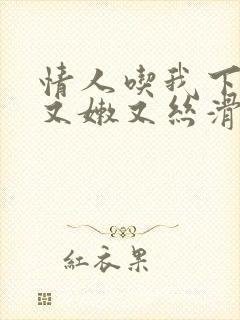 情人喫我下
又嫩又丝滑
紅衣果